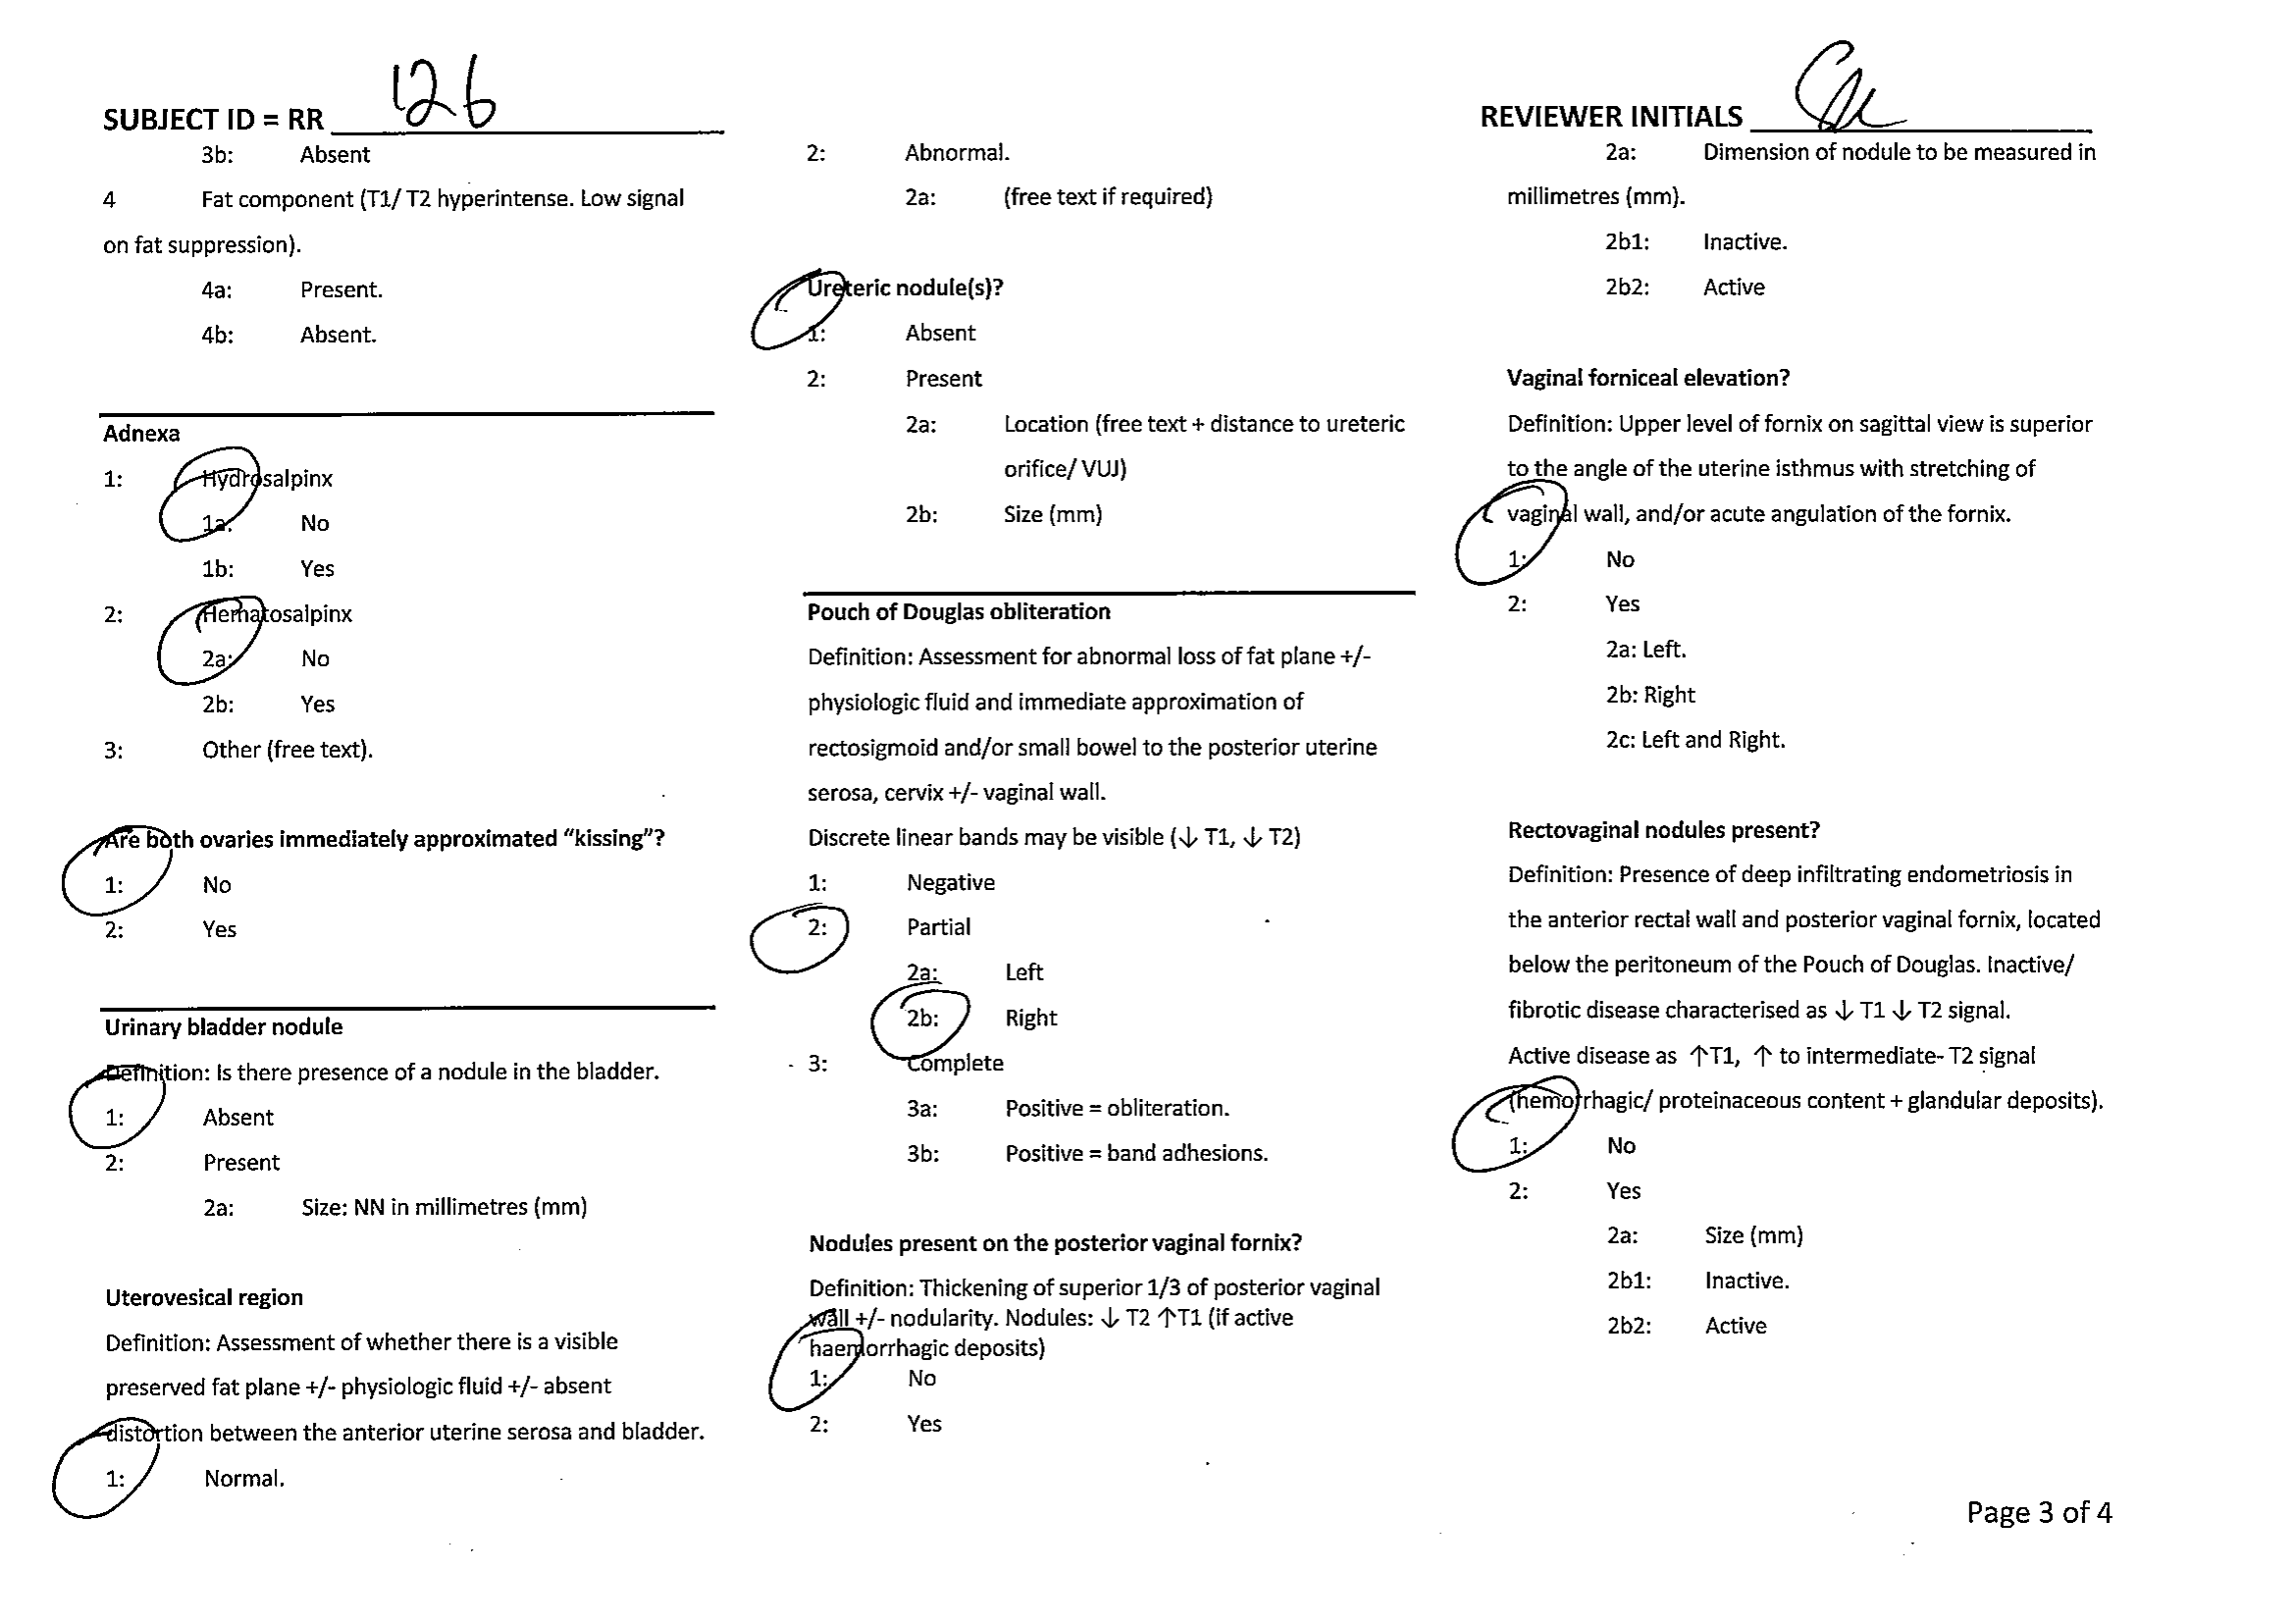 SUBJECT ID = RR 126
3b: Absent
4 Fat component (T1/ T2 hyperintense. Low signal
on fat suppression).
4a: Present.
4b: Absent.
Adnexa
1: Hydrosalpinx
1a: No
1b: Yes
2: Hematosalpinx
2a: No
2b: Yes
3: Other (free text).
Are both ovaries immediately approximated “kissing”?
1: No
2: Yes
Urinary bladder nodule
Definition: Is there presence of a nodule in the bladder.
1: Absent
2: Present
2a: Size: NN in millimetres (mm)
Uterovesical region
Definition: Assessment of whether there is a visible
preserved fat plane +/- physiologic fluid +/- absent
distortion between the anterior uterine serosa and bladder.
1: Normal.
2: Abnormal.
2a: (free text if required)
Ureteric nodule(s)?
1: Absent
2: Present
2a: Location (free text + distance to ureteric
orifice/ VUJ)
2b: Size (mm)
Pouch of Douglas obliteration
Definition: Assessment for abnormal loss of fat plane +/-
physiologic fluid and immediate approximation of
rectosigmoid and/or small bowel to the posterior uterine
serosa, cervix +/- vaginal wall.
Discrete linear bands may be visible (↓ T1, ↓ T2)
1: Negative
2: Partial
2a: Left
2b: Right
3: Complete
3a: Positive = obliteration.
3b: Positive = band adhesions.
Nodules present on the posterior vaginal fornix?
Definition: Thickening of superior 1/3 of posterior vaginal
wall +/- nodularity. Nodules: ↓ T2 ↑T1 (if active
haemorrhagic deposits)
1: No
2: Yes
REVIEWER INITIALS
2a: Dimension of nodule to be measured in
millimetres (mm).
2b1: Inactive.
2b2: Active
Vaginal forniceal elevation?
Definition: Upper level of fornix on sagittal view is superior
to the angle of the uterine isthmus with stretching of
vaginal wall, and/or acute angulation of the fornix.
1: No
2: Yes
2a: Left.
2b: Right
2c: Left and Right.
Rectovaginal nodules present?
Definition: Presence of deep infiltrating endometriosis in
the anterior rectal wall and posterior vaginal fornix, located
below the peritoneum of the Pouch of Douglas. Inactive/
fibrotic disease characterised as ↓ T1 ↓ T2 signal.
Active disease as ↑T1, ↑ to intermediate- T2 signal
(hemorrhagic/ proteinaceous content + glandular deposits).
1: No
2: Yes
2a: Size (mm)
2b1: Inactive.
2b2: Active
Page 3 of 4